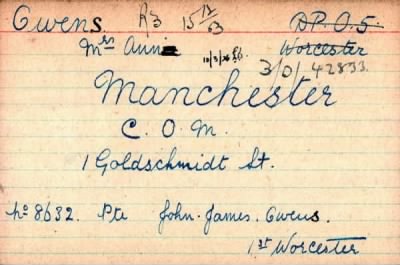 Owens R3 15/12/63 D.P.O.5.
Mrs Annie 10/3/26 Worcester
3/0/42833.
Manchester
C. O. M.
1 Goldschmidt St.
No 8632. Pte John. James. Owens.
1st Worcester